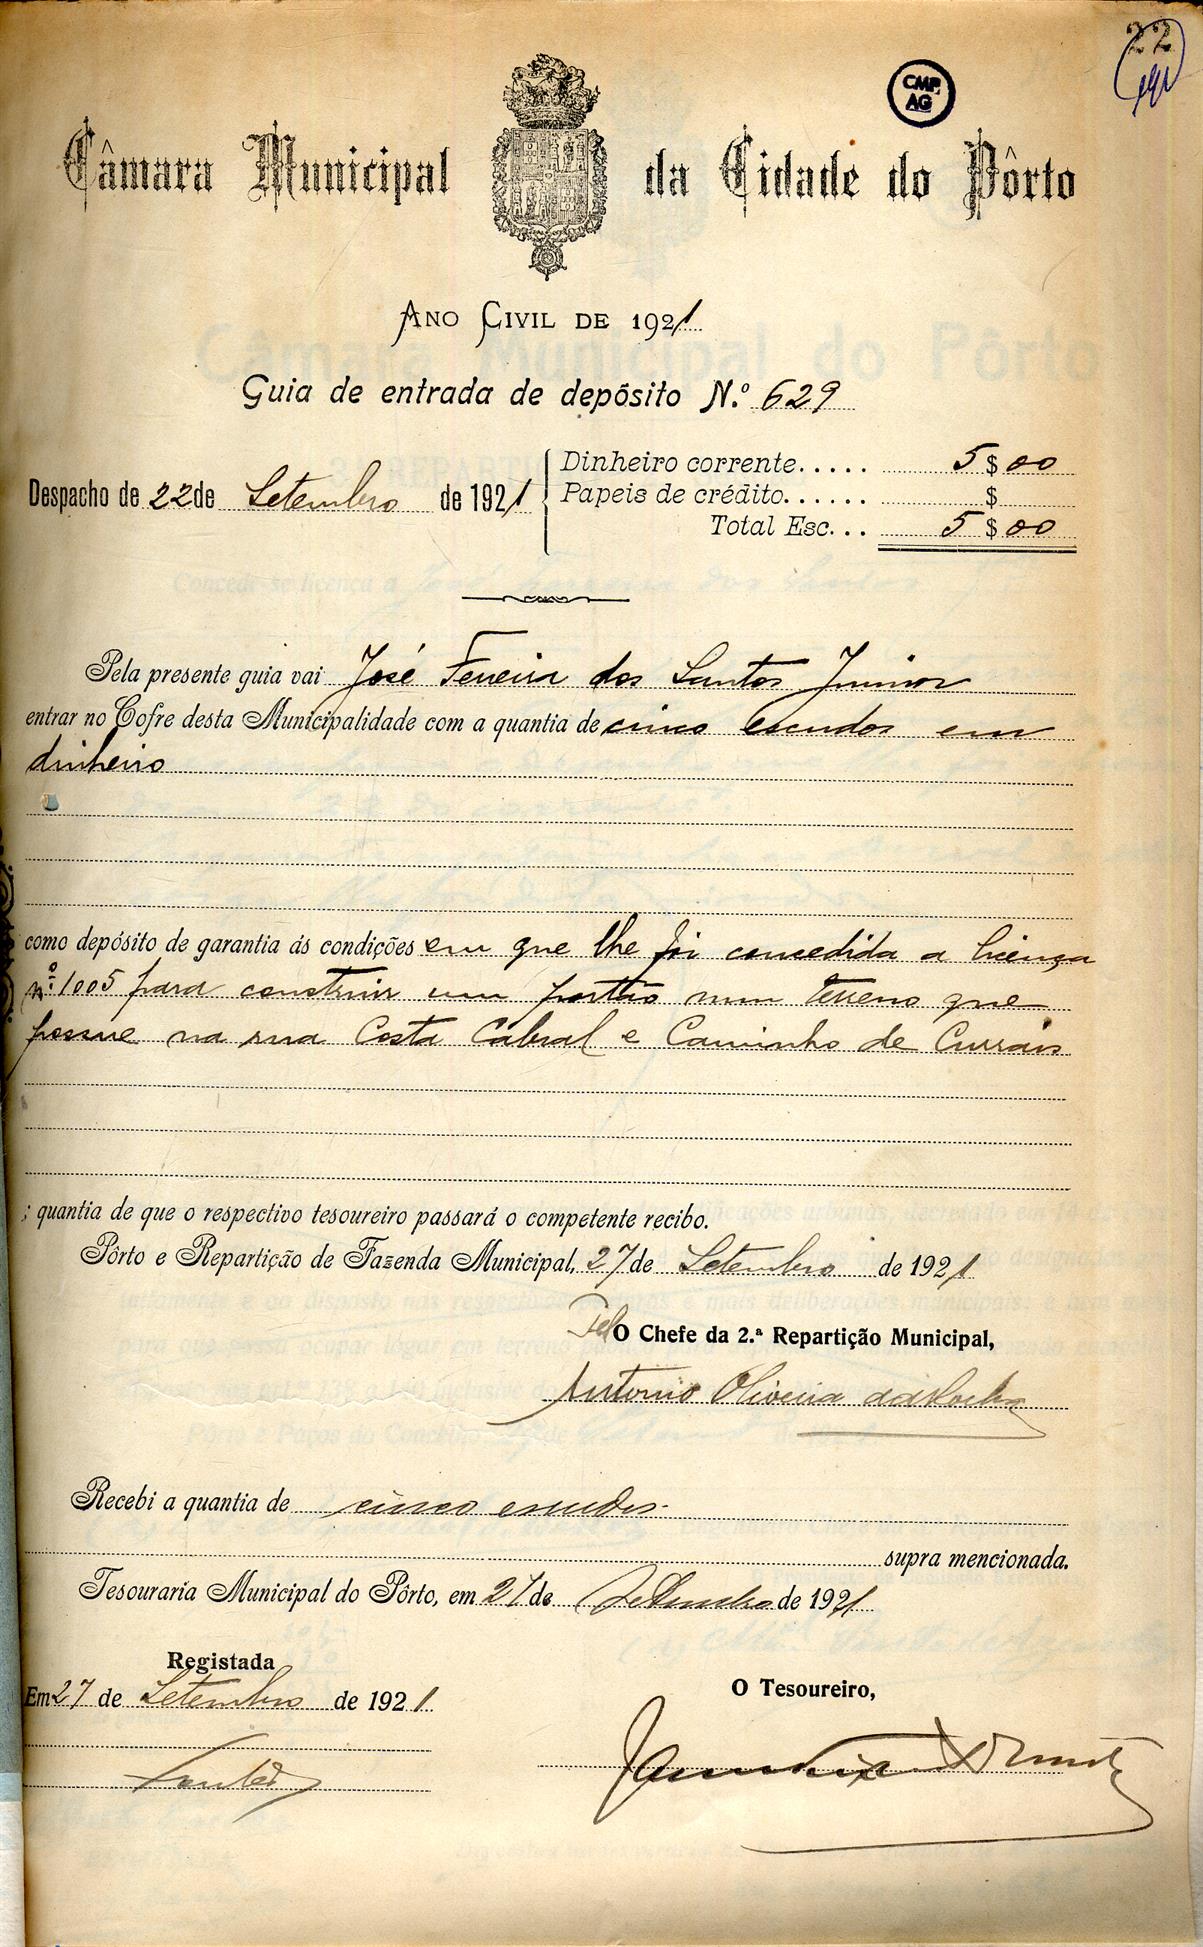 22
CMP.
AG
Câmara Municipal da Cidade do Pôrto
ANO CIVIL DE 1921
Guia de entrada de depósito N.º 629
Despacho de 22 de Setembro de 1921
Dinheiro corrente..... 5 $ 00
Papeis de crédito...... $
Total Esc... 5 $ 00
Pela presente guia vai José Ferreira dos Santos Junior
entrar no Cofre desta Municipalidade com a quantia de cinco escudos em
dinheiro
como depósito de garantia ás condições em que lhe foi concedida a licença
nº 1005 para construir um portão num terreno que
possue na rua Costa Cabral e Caminho de Currais
; quantia de que o respectivo tesoureiro passará o competente recibo.
Pôrto e Repartição de Fazenda Municipal, 27 de Setembro de 1921
Pel O Chefe da 2.ª Repartição Municipal,
Antonio Oliveira da Rocha
Recebi a quantia de cinco escudos
supra mencionada.
Tesouraria Municipal do Pôrto, em 27 de Setembro de 1921
Registada
Em 27 de Setembro de 1921
O Tesoureiro,